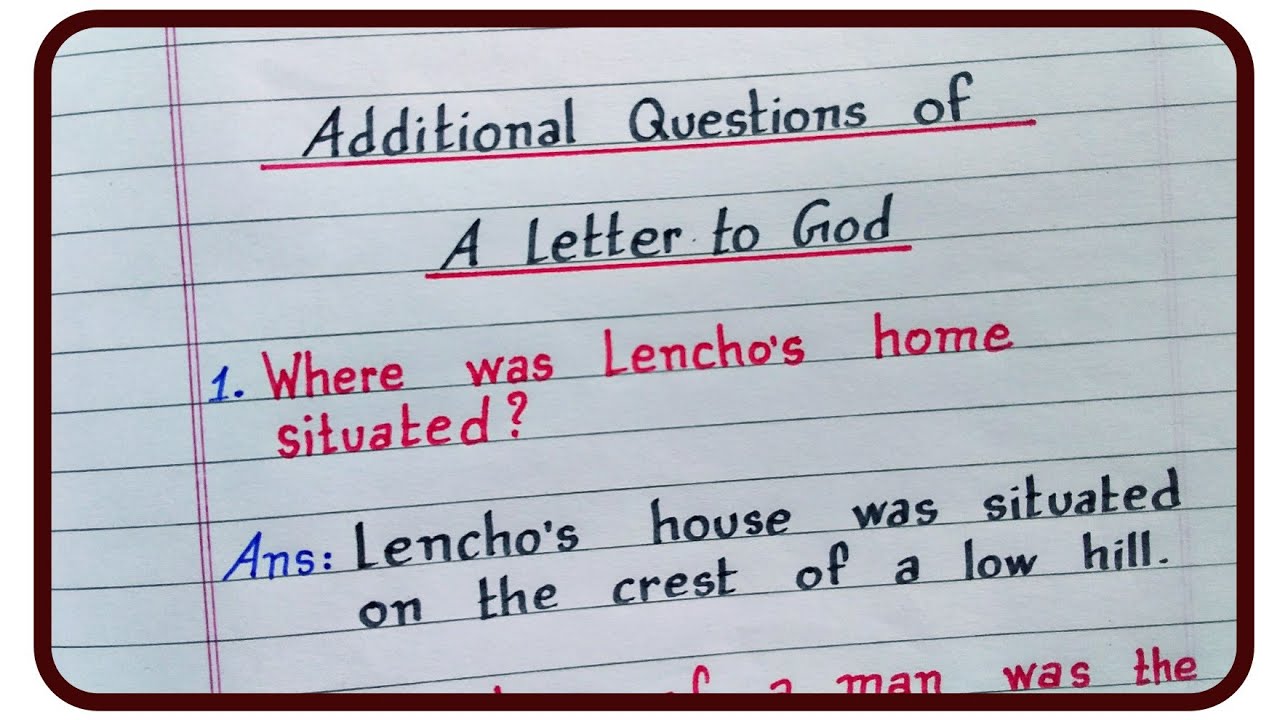 Additional Questions of
A Letter to God
1. Where was Lencho's home
situated?
Ans: Lencho's house was situated
on the crest of a low hill.
of a man was the